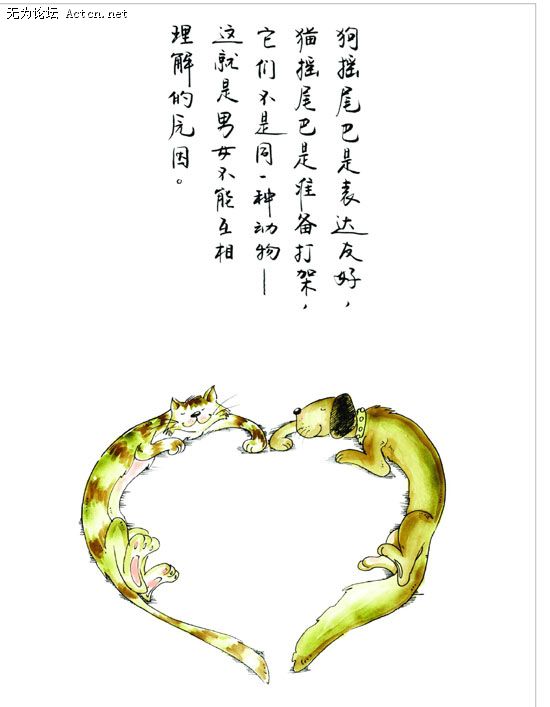 无为论坛 Actcn.net
狗摇尾巴是表达友好，
猫摇尾巴是准备打架，
它们不是同一种动物—
这就是男女不能互相
理解的原因。